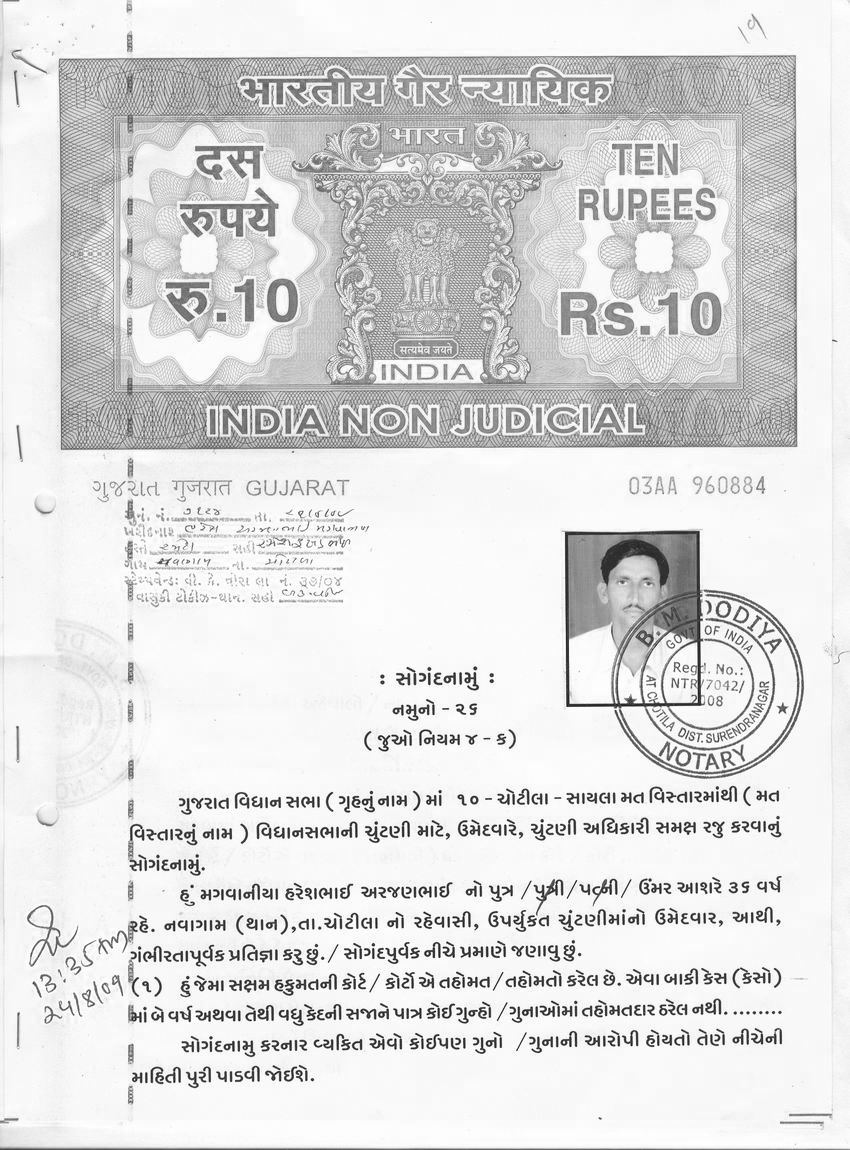 19
भारतीय गैर न्यायिक
भारत
दस
रुपये
रु.10
TEN
RUPEES
Rs.10
सत्यमेव जयते
INDIA
INDIA NON JUDICIAL
ગુજરાત गुजरात GUJARAT
03AA 960884
સ્ટેમ્પવેન્ડર: વી. કે. વોરા લા નં. ૩૭/૦૪
વાસુકી ટોકીઝ-થાન. સહી
B. M. DODIYA
GOVT OF INDIA
Regd. No.:
NTR/7042/
2008
AT CHOTILA DIST. SURENDRANAGAR
NOTARY
: સોગંદનામું :
નમુનો - ૨૬
( જુઓ નિયમ ૪ - ક)
ગુજરાત વિધાન સભા ( ગૃહનું નામ ) માં ૧૦ - ચોટીલા - સાયલા મત વિસ્તારમાંથી ( મત
વિસ્તારનું નામ ) વિધાનસભાની ચુંટણી માટે, ઉમેદવારે, ચુંટણી અધિકારી સમક્ષ રજુ કરવાનું
સોગંદનામું.
હું મગવાનીયા હરેશભાઈ અરજણભાઈ નો પુત્ર /પુત્રી/પત્ની/ ઉંમર આશરે ૩૬ વર્ષ
રહે. નવાગામ (થાન),તા.ચોટીલા નો રહેવાસી, ઉપર્યુકત ચુંટણીમાંનો ઉમેદવાર, આથી,
ગંભીરતાપૂર્વક પ્રતિજ્ઞા કરુ છું./ સોગંદપુર્વક નીચે પ્રમાણે જણાવુ છું.
(૧) હું જેમા સક્ષમ હકુમતની કોર્ટ/ કોર્ટો એ તહોમત/ તહોમતો કરેલ છે. એવા બાકી કેસ (કેસો)
માં બે વર્ષ અથવા તેથી વધુ કેદની સજાને પાત્ર કોઈ ગુન્હો /ગુનાઓમાં તહોમતદાર ઠરેલ નથી. ........
સોગંદનામુ કરનાર વ્યકિત એવો કોઈપણ ગુનો /ગુનાની આરોપી હોયતો તેણે નીચેની
માહિતી પુરી પાડવી જોઈશે.
13:35 AM
24/8/09